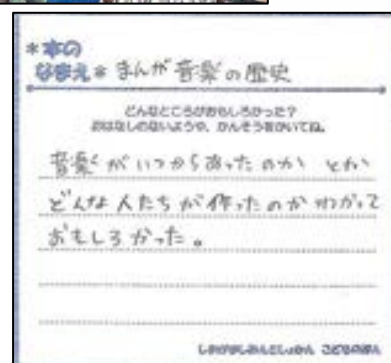 *本の
なまえ* まんが音楽の歴史
どんなところがおもしろかった?
おはなしのないようや、かんそうをかいてね。
音楽がいつからあったのか とか
どんな人たちが作ったのかわかって
おもしろかった。